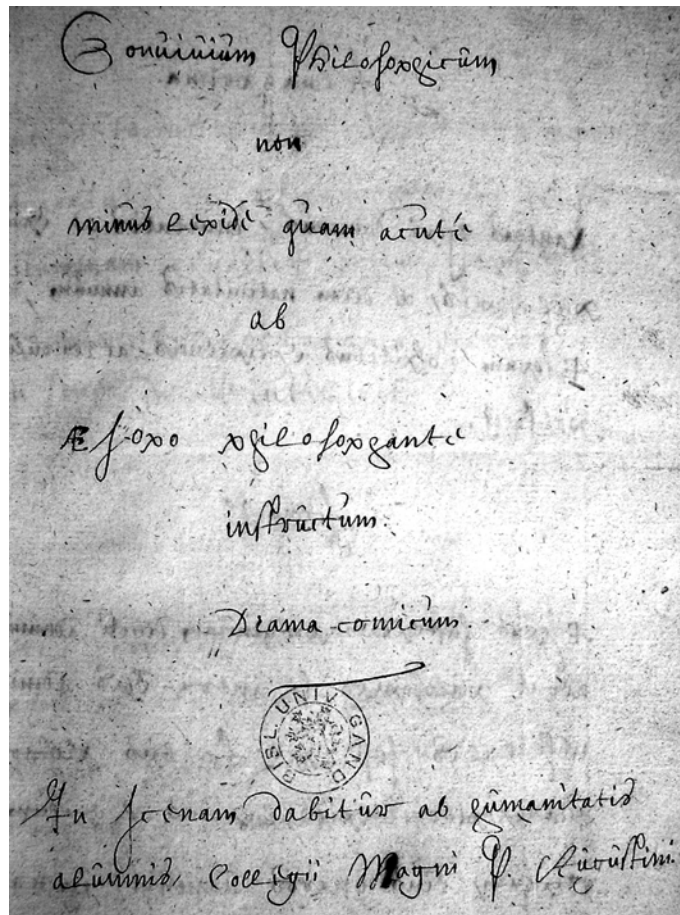 Conuiuium Philosophicum
non
minus lepide quam acute
ab
Æsopo philosophante
instructum.
Drama comicum.
BIBL. UNIV. GAND
In scenam dabitur ab humanitatis
alumnis Collegii Magni P. Augustini